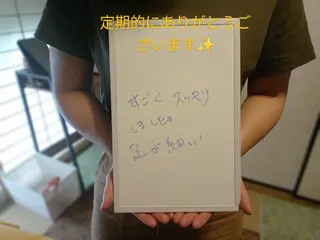 定期的にありがとうご
ざいます✨
すごく スッキリ
しました
足が細い!